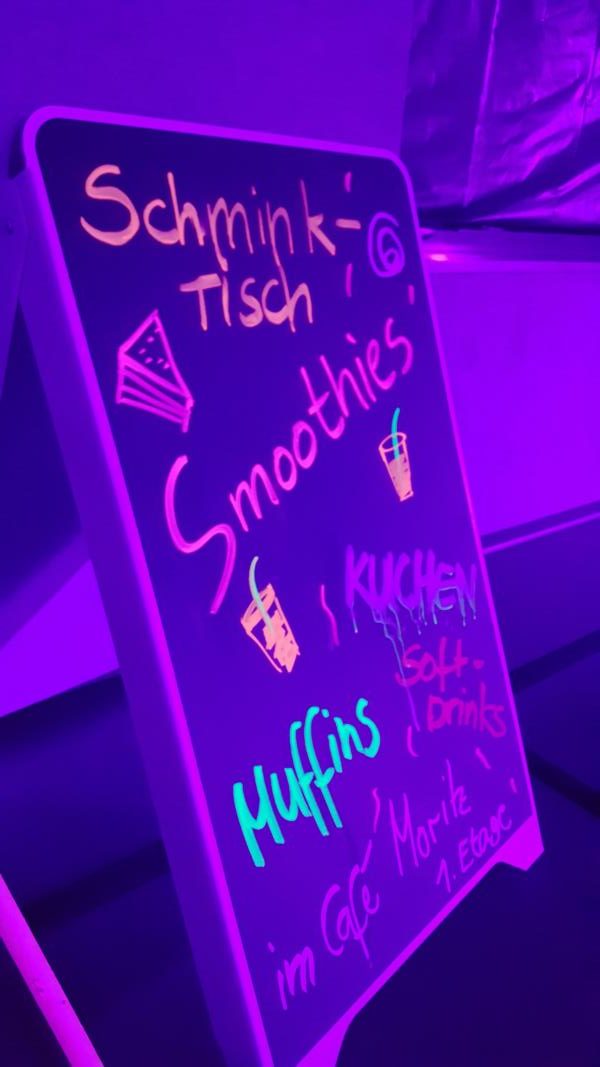 Schmink-
Tisch
Smoothies
KUCHEN
Soft-
Drinks
Muffins
im Café Moritz
1. Etage